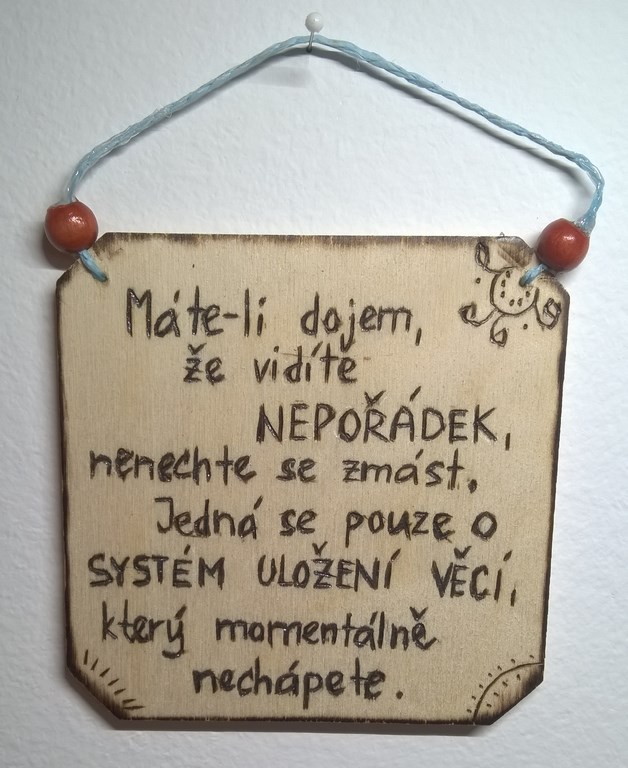 Máte-li dojem,
že vidíte
NEPOŘÁDEK,
nenechte se zmást.
Jedná se pouze o
SYSTÉM ULOŽENÍ VĚCÍ,
který momentálně
nechápete.